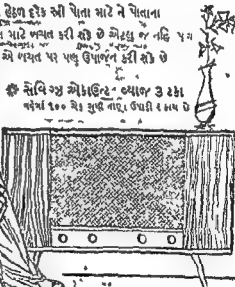 હેઠળ દરેક સ્ત્રી પોતા માટે ને પોતાના
માટે બચત કરી શકે છે એટલુ જ નહિ પણ
એ બચત પર પણ ઉપાર્જન કરી શકે છે
સેવિંગ્ઝ એકાઉન્ટ - વ્યાજ ૩ ટકા
વર્ષમાં ૧૦૦ ચેક સુધી નાણા ઉપાડી શકાય છે